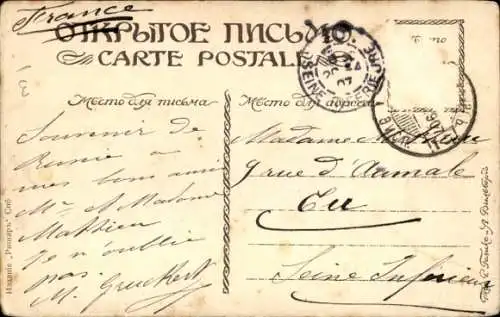 France
ОТКРЫТОЕ ПИСЬМО
CARTE POSTALE
Место для письма
Место для адреса
Souvenir de
Russie à
mes bons amis
Mr & Madame
Mathieu
je n'oublie
pas.
M. Gruckert
Madame Mathieu
9 rue d'Aumale
Eu
Seine Inférieure
Изданiе „Ришаръ“ Спб